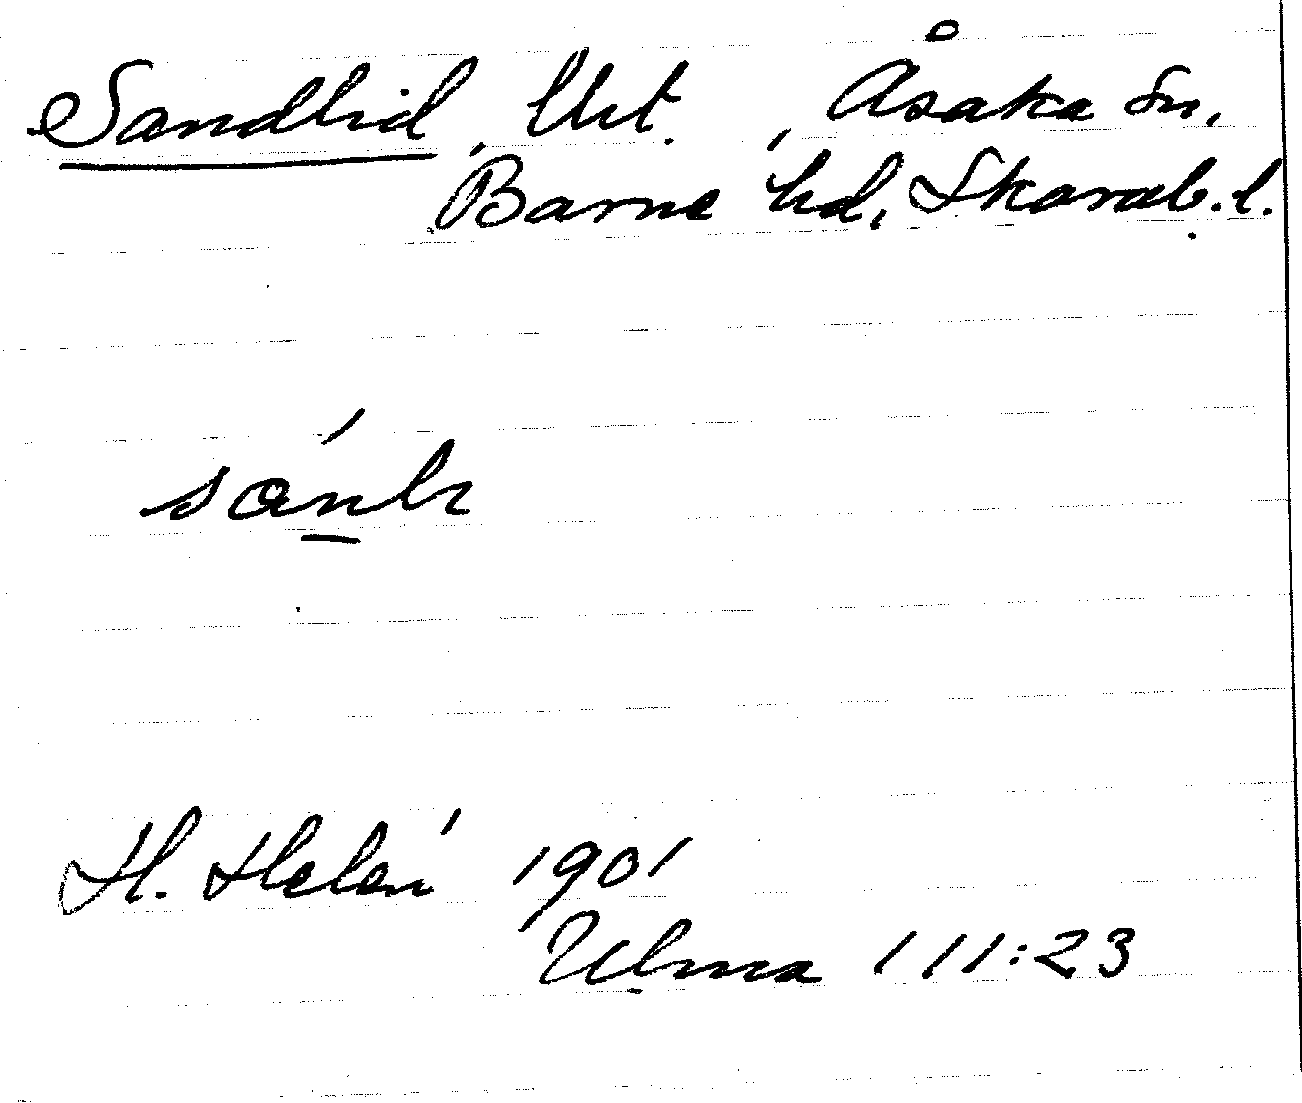 Sandlid, Utt., Åsaka sn,
Barne hd, Skarab. l.
H. Helén 1901
Ulma 111:23